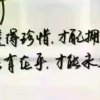 懂得珍惜,才配拥
有在乎,才能永